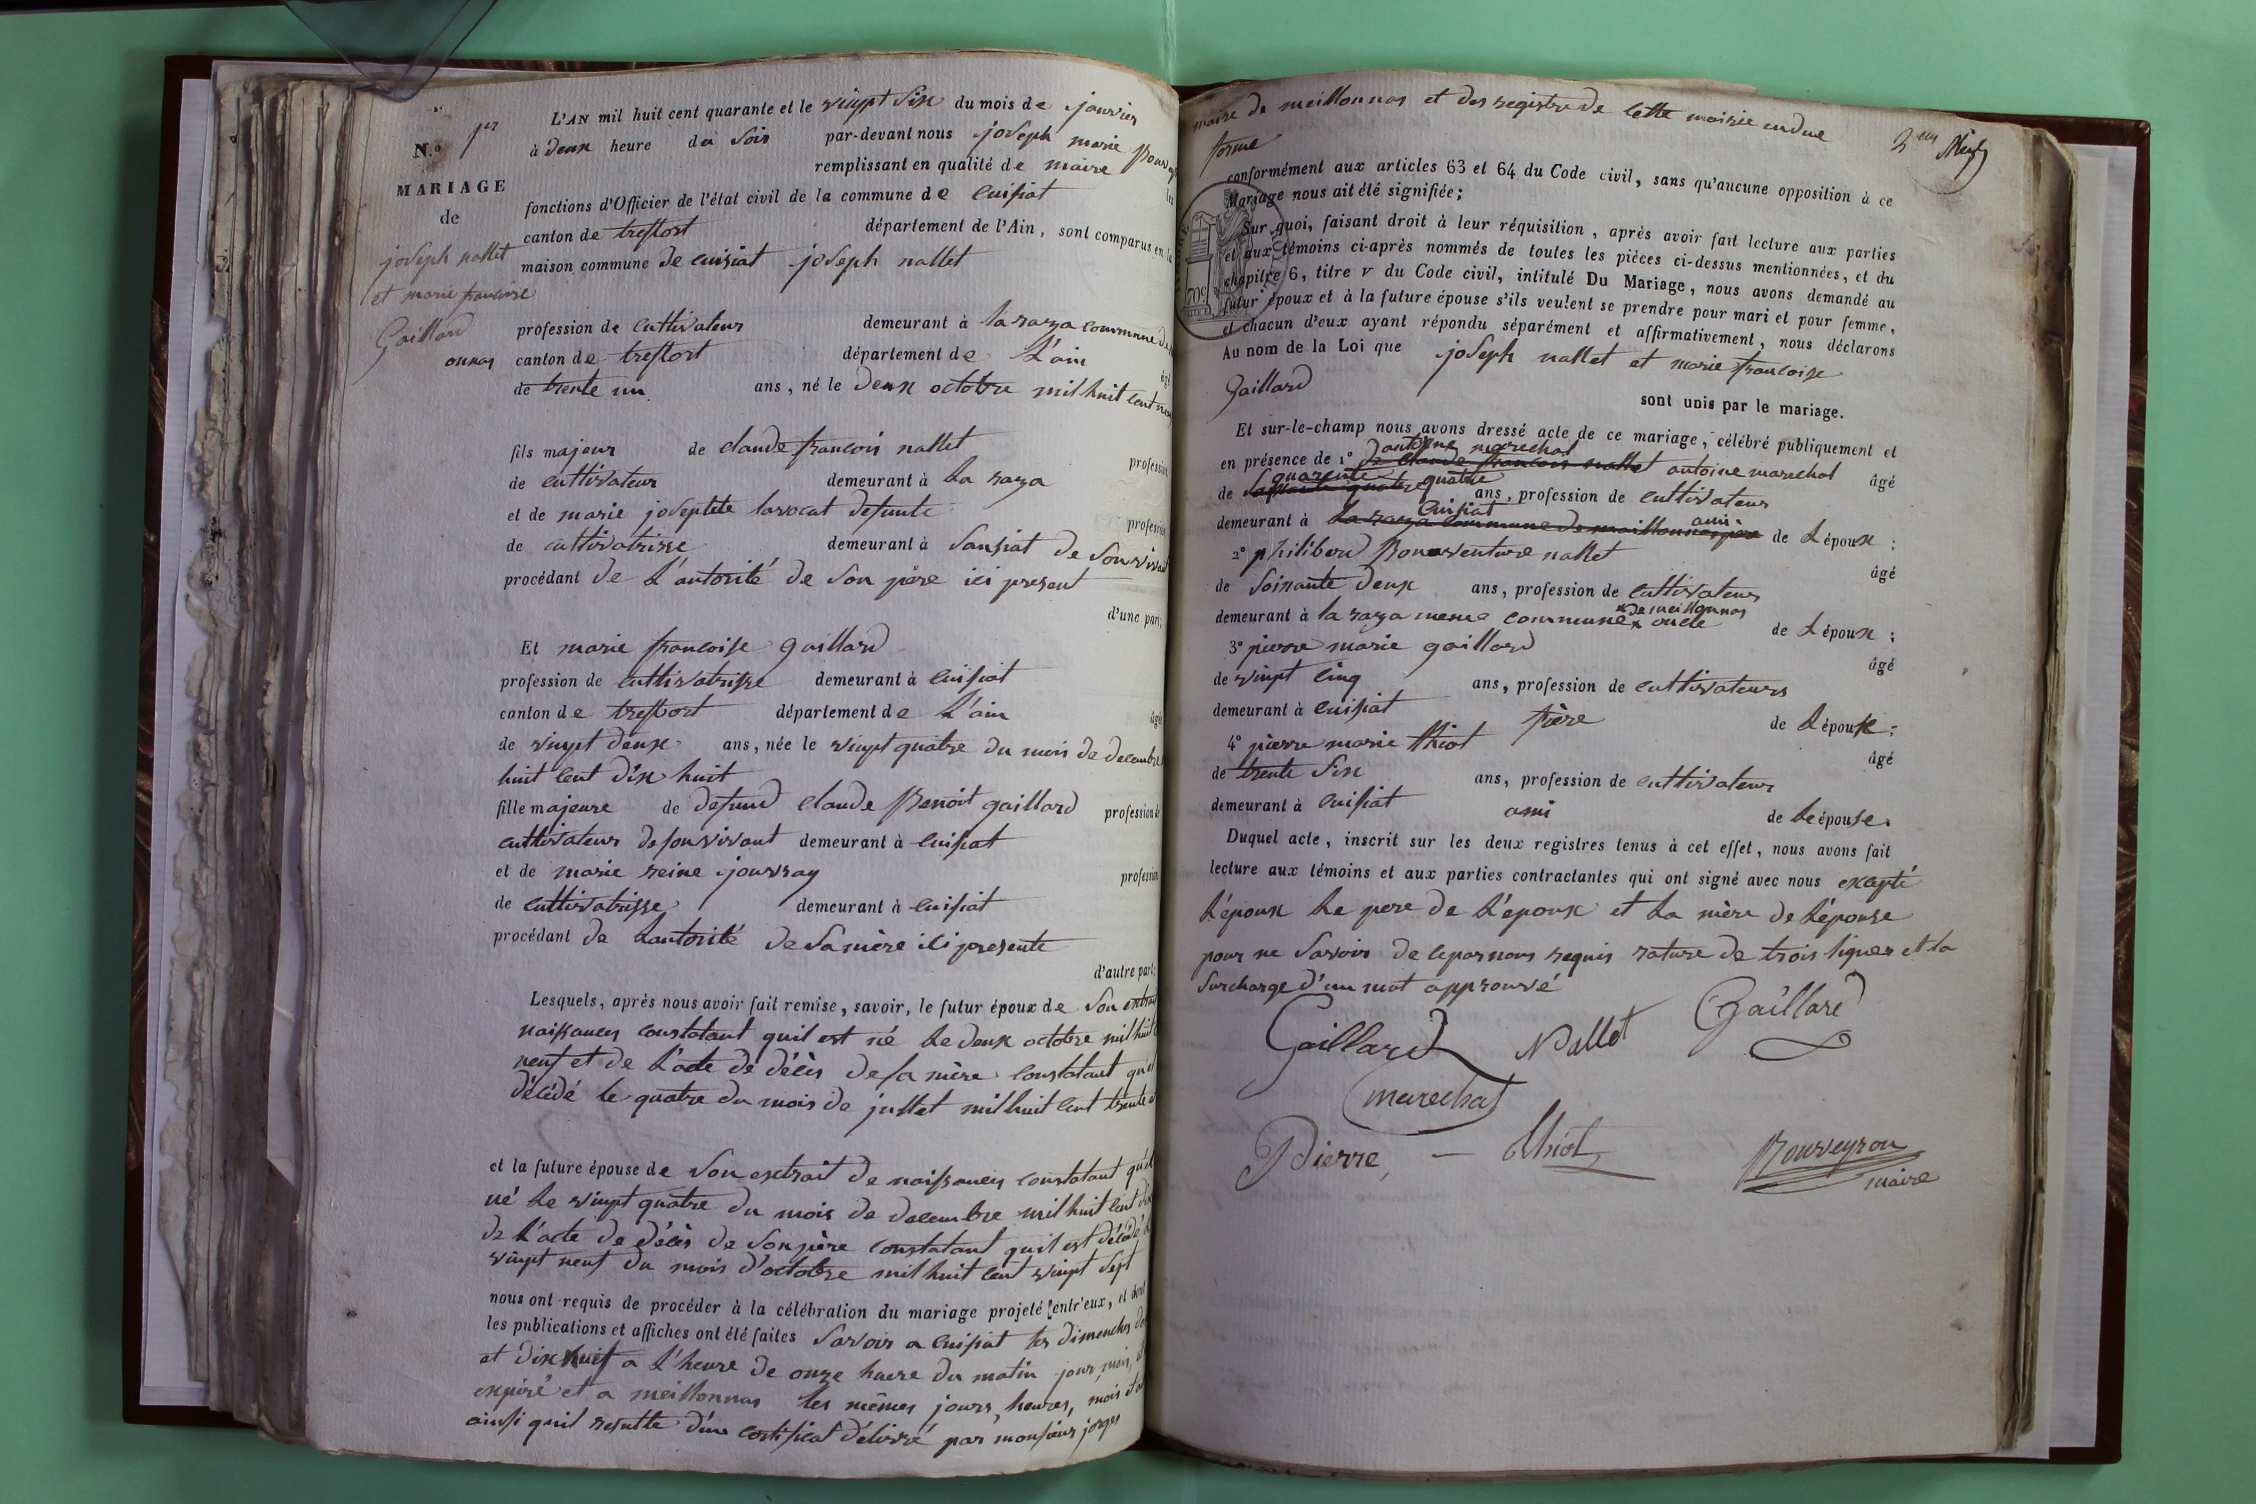 N.o 1er
MARIAGE
de
joseph nallet
et marie francoise
Gaillard
onnas
L'AN mil huit cent quarante et le vingt Six du mois de janvier
à deux heure du Soir par-devant nous joseph marie
remplissant en qualité de maire
fonctions d'Officier de l'état civil de la commune de Cuisiat
canton de treffort département de l'Ain, sont comparus en la
maison commune de cuisiat joseph nallet
profession de cultivateur demeurant à la raza commune de
canton de treffort département de L'ain
de trente un ans, né le deux octobre mil huit cent neuf
fils majeur de claude françois nallet profession
de cultivateur demeurant à La raza
et de marie josephte lavocat defunte profession
de cultivatrisse demeurant à Sansiat de Son vivant
procédant de L'autorité de Son père ici present
d'une part;
Et marie francoise gaillard
profession de cultivatrisse demeurant à Cuisiat
canton de treffort département de L'ain âgée
de vingt deux ans, née le vingt quatre du mois de decembre
huit cent dix huit
fille majeure de defund claude Benoit gaillard profession de
cultivateur de son vivant demeurant à Cuisiat
et de marie reine jourray profession
de cultivatrisse demeurant à Cuisiat
procédant de Lautorité de Sa mère ici presente
d'autre part;
Lesquels, après nous avoir fait remise, savoir, le futur époux de Son extrait
naissances constatant quil est né Le deux octobre mil huit
neuf et de L'acte de décès de sa mère constatant
décédé le quatre du mois de jullet mil huit cent trente
et la future épouse de Son extrait de naissances constatant
né Le vingt quatre du mois de decembre mil huit cent dix
de L'acte de décès de Son père constatant quil est décédé
vingt neuf du mois d'octobre mil huit cent vingt Sept
nous ont requis de procéder à la célébration du mariage projeté entr'eux, et dont
les publications et affiches ont été faites Savoir a Cuisiat les dimenches
et dix huit a L'heure de onze heure du matin jour, mois,
expiré et a meillonnas les mêmes jours, heures, mois et an
ainsi quil resulte d'un certificat délivré par monsieur
maire de meillonnas et des registre de Cette mairie en due
forme
conformément aux articles 63 et 64 du Code civil, sans qu'aucune opposition à ce
Mariage nous ait été signifiée;
Sur quoi, faisant droit à leur réquisition, après avoir fait lecture aux parties
et aux témoins ci-après nommés de toutes les pièces ci-dessus mentionnées, et du
chapitre 6, titre v du Code civil, intitulé Du Mariage, nous avons demandé au
futur époux et à la future épouse s'ils veulent se prendre pour mari et pour femme,
et chacun d'eux ayant répondu séparément et affirmativement, nous déclarons
70c
Au nom de la Loi que joseph nallet et marie francoise
Gaillard
sont unis par le mariage.
Et sur-le-champ nous avons dressé acte de ce mariage, célébré publiquement et
antoine marechal
en présence de 1º de claude francois nallet antoine marechal âgé
quarente quatre
de Soissante quatre ans, profession de cultivateur
Cuisiat ami
demeurant à La raza commune de meillonnas père de L époux;
2º philiberd Bonaventure nallet âgé
de Soixante deux ans, profession de cultivateur
de meillonnas
demeurant à la raza meme commune oncle de L époux;
3º pierre marie gaillard âgé
de vingt Cinq ans, profession de cultivateurs
demeurant à Cuisiat frère de L épouse;
4º pierre marie thiot âgé
de trente Six ans, profession de cultivateur
demeurant à Cuisiat ami de Le épouse.
Duquel acte, inscrit sur les deux registres tenus à cet effet, nous avons fait
lecture aux témoins et aux parties contractantes qui ont signé avec nous excepté
L'époux Le pere de L'epoux et La mère de L'épouse
pour ne Savoir de ce par nous requis rature de trois lignes et la
Surcharge d'un mot approuvé
Gaillard Nallet Gaillard
marechal
Pierre - thiot Bouveyron
maire